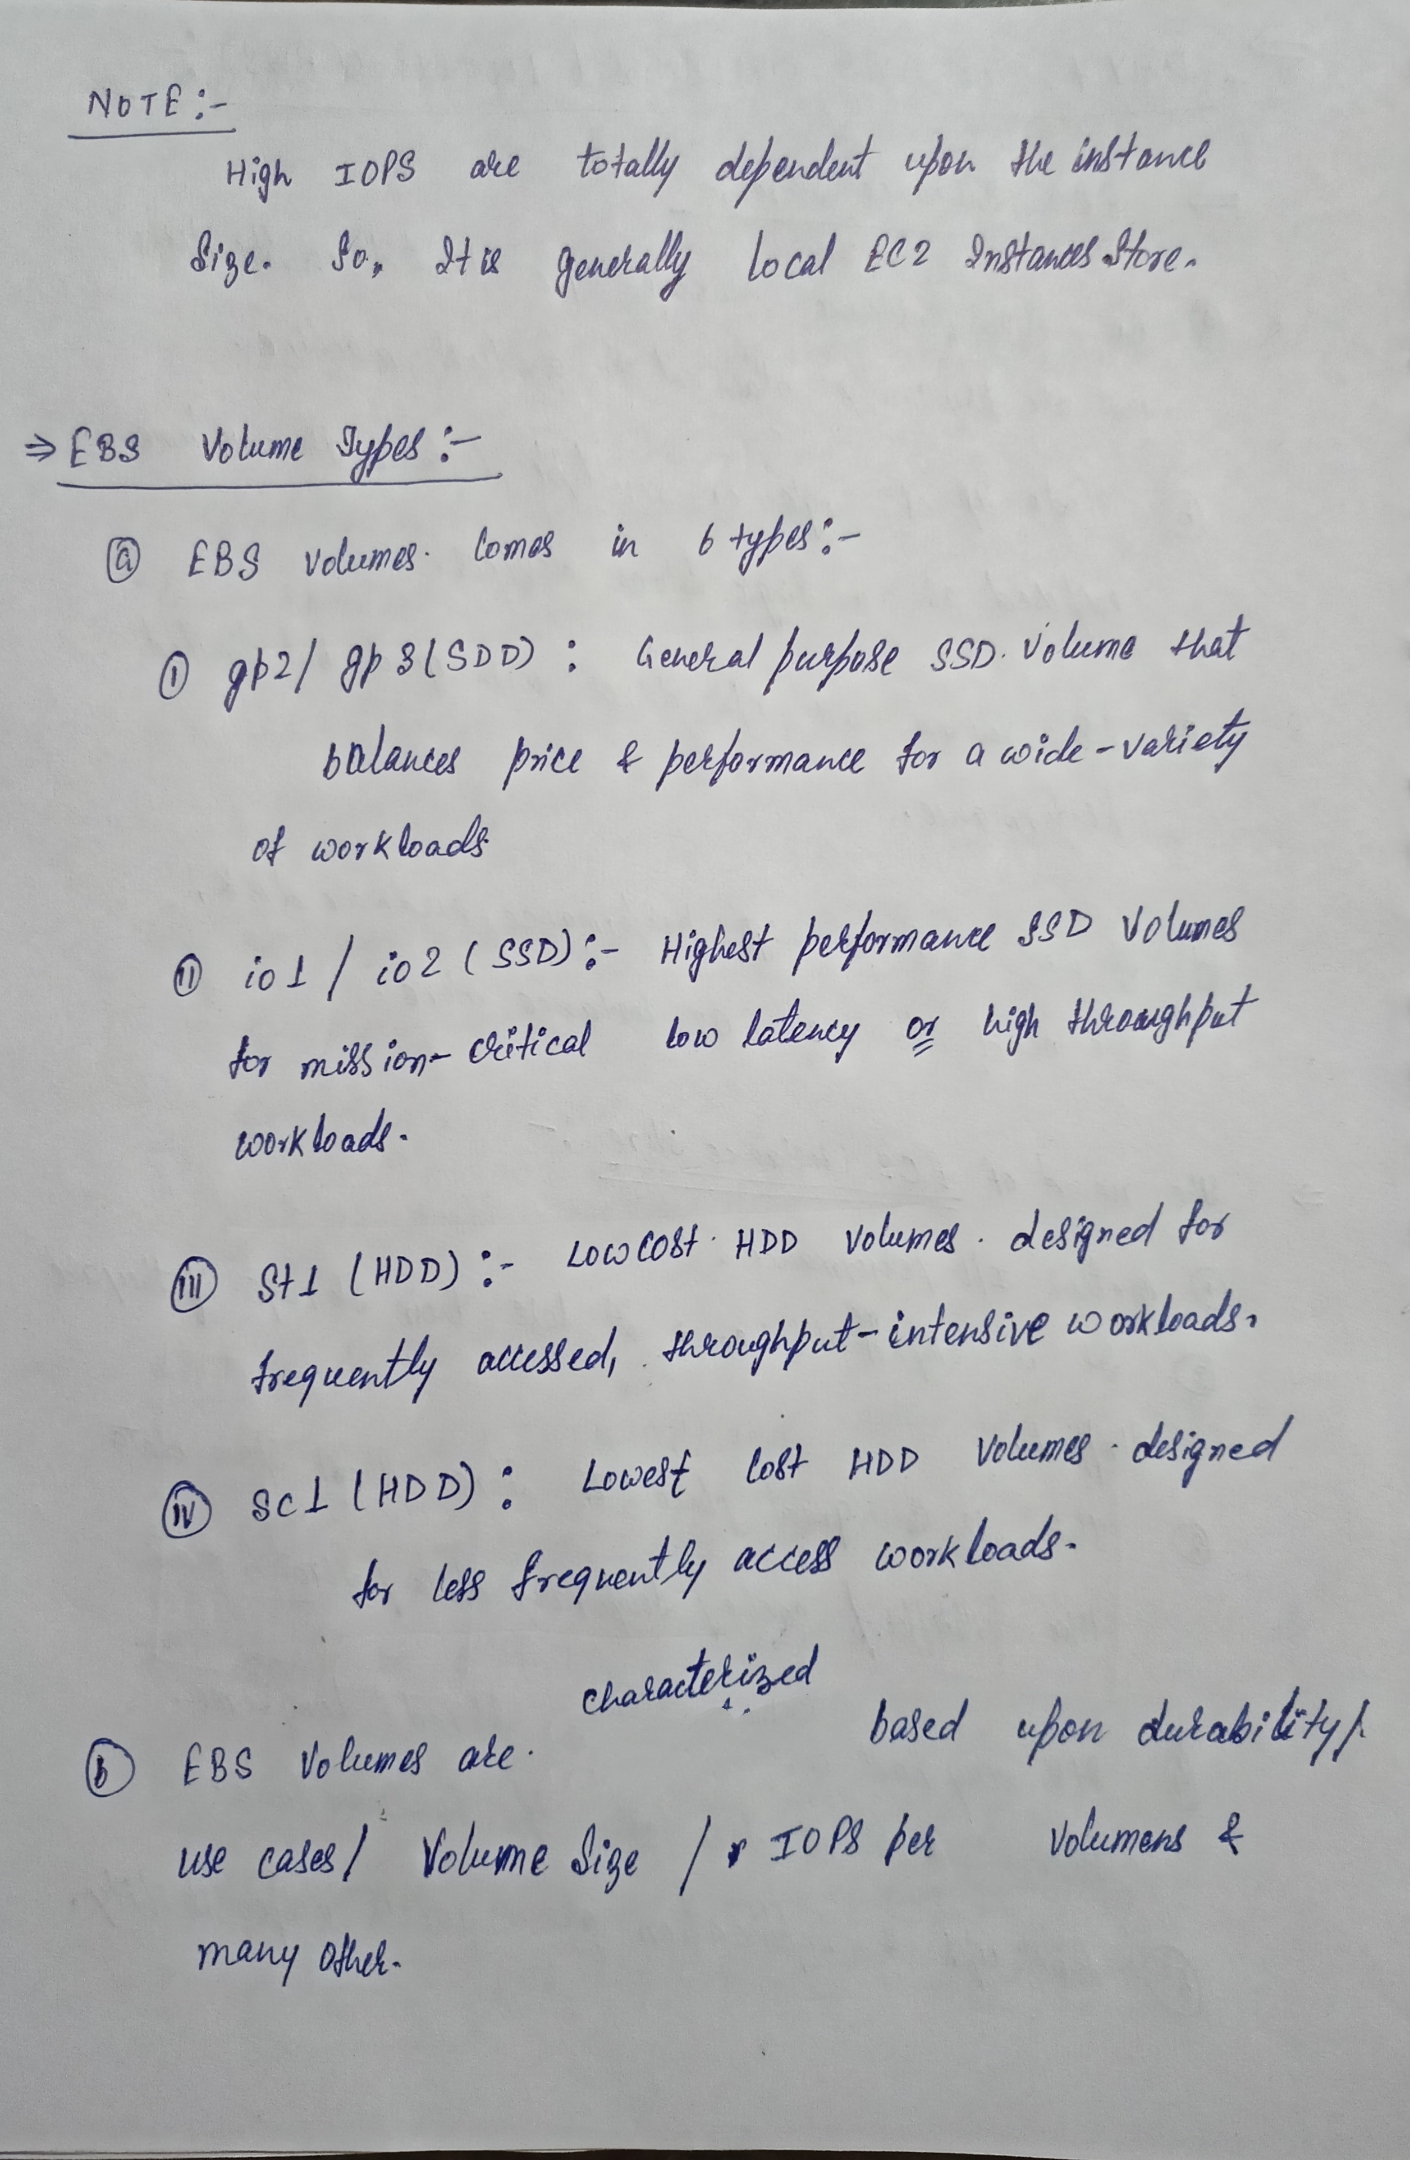 NOTE :-
High IOPS are totally dependent upon the instance
Size. So, It is generally local EC2 Instances Store.
⇒ EBS Volume Types :-
ⓐ EBS volumes. Comes in 6 types :-
① gp2/ gp3 (SDD) : General purpose SSD. Volume that
balances price & performance for a wide-variety
of workloads
ⅱ io1 / io2 ( SSD) :- Highest performance SSD Volumes
for mission-critical low latency or high throughput
workloads.
ⅲ St1 (HDD) :- Low cost. HDD Volumes. designed for
frequently accessed, throughput-intensive workloads.
ⅳ Sc1 (HDD) : Lowest Cost HDD Volumes. designed
for less frequently access workloads.
characterized
ⓑ EBS Volumes are. based upon durability/.
use cases/ Volume Size / IOPS per Volumens &
many other.